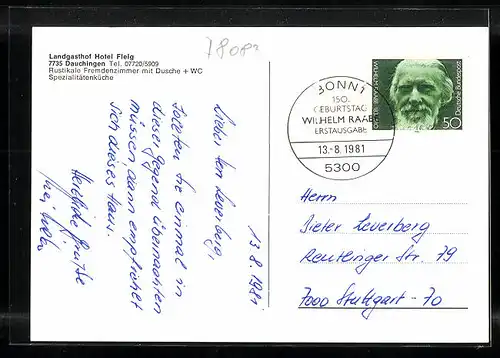 Landgasthof Hotel Fleig
7735 Dauchingen Tel. 07720/5909
Rustikale Fremdenzimmer mit Dusche + WC
Spezialitätenküche
13.8.1981
Lieber Herr Leuerberg,
sollten Sie einmal in
dieser Gegend übernachten
müssen, dann empfiehlt
sich dieses Haus.
Herzliche Grüße
BONN 1
150.
GEBURTSTAG
WILHELM RAABE
ERSTAUSGABE
13.-8.1981
5300
Deutsche Bundespost
50
Herrn
Dieter Leuerberg
Reutlinger Str. 79
7000 Stuttgart - 70